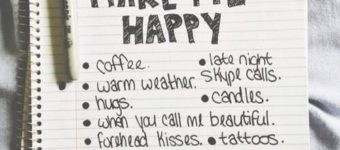 MAKE ME
HAPPY
• coffee.
• warm weather.
• hugs.
• when you call me beautiful.
• forehead kisses.
• late night
skype calls.
• candles.
• tattoos.